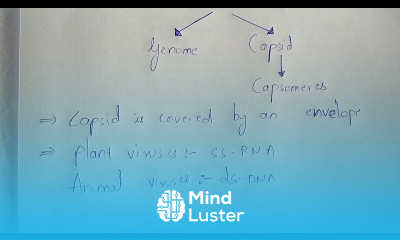 Genome Capsid
Capsomeres
⇒ Capsid is covered by an envelope
⇒ Plant viruses :- ss-RNA
Animal viruses :- ds-DNA
Mind
Luster